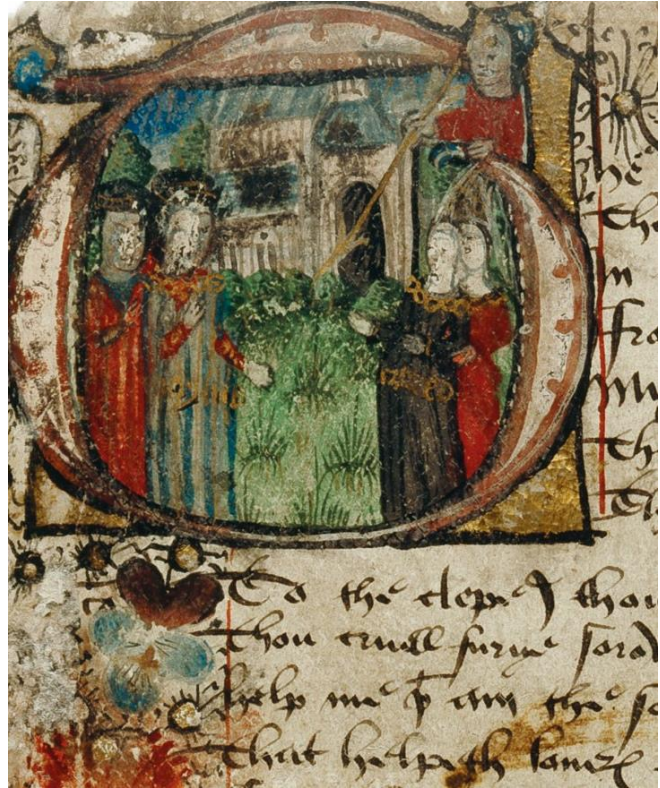 he
Tha
In
Fro
My
The
Th
To the clepe I thou
Thou cruell furye soro
help me þt am the so
That helpith louer